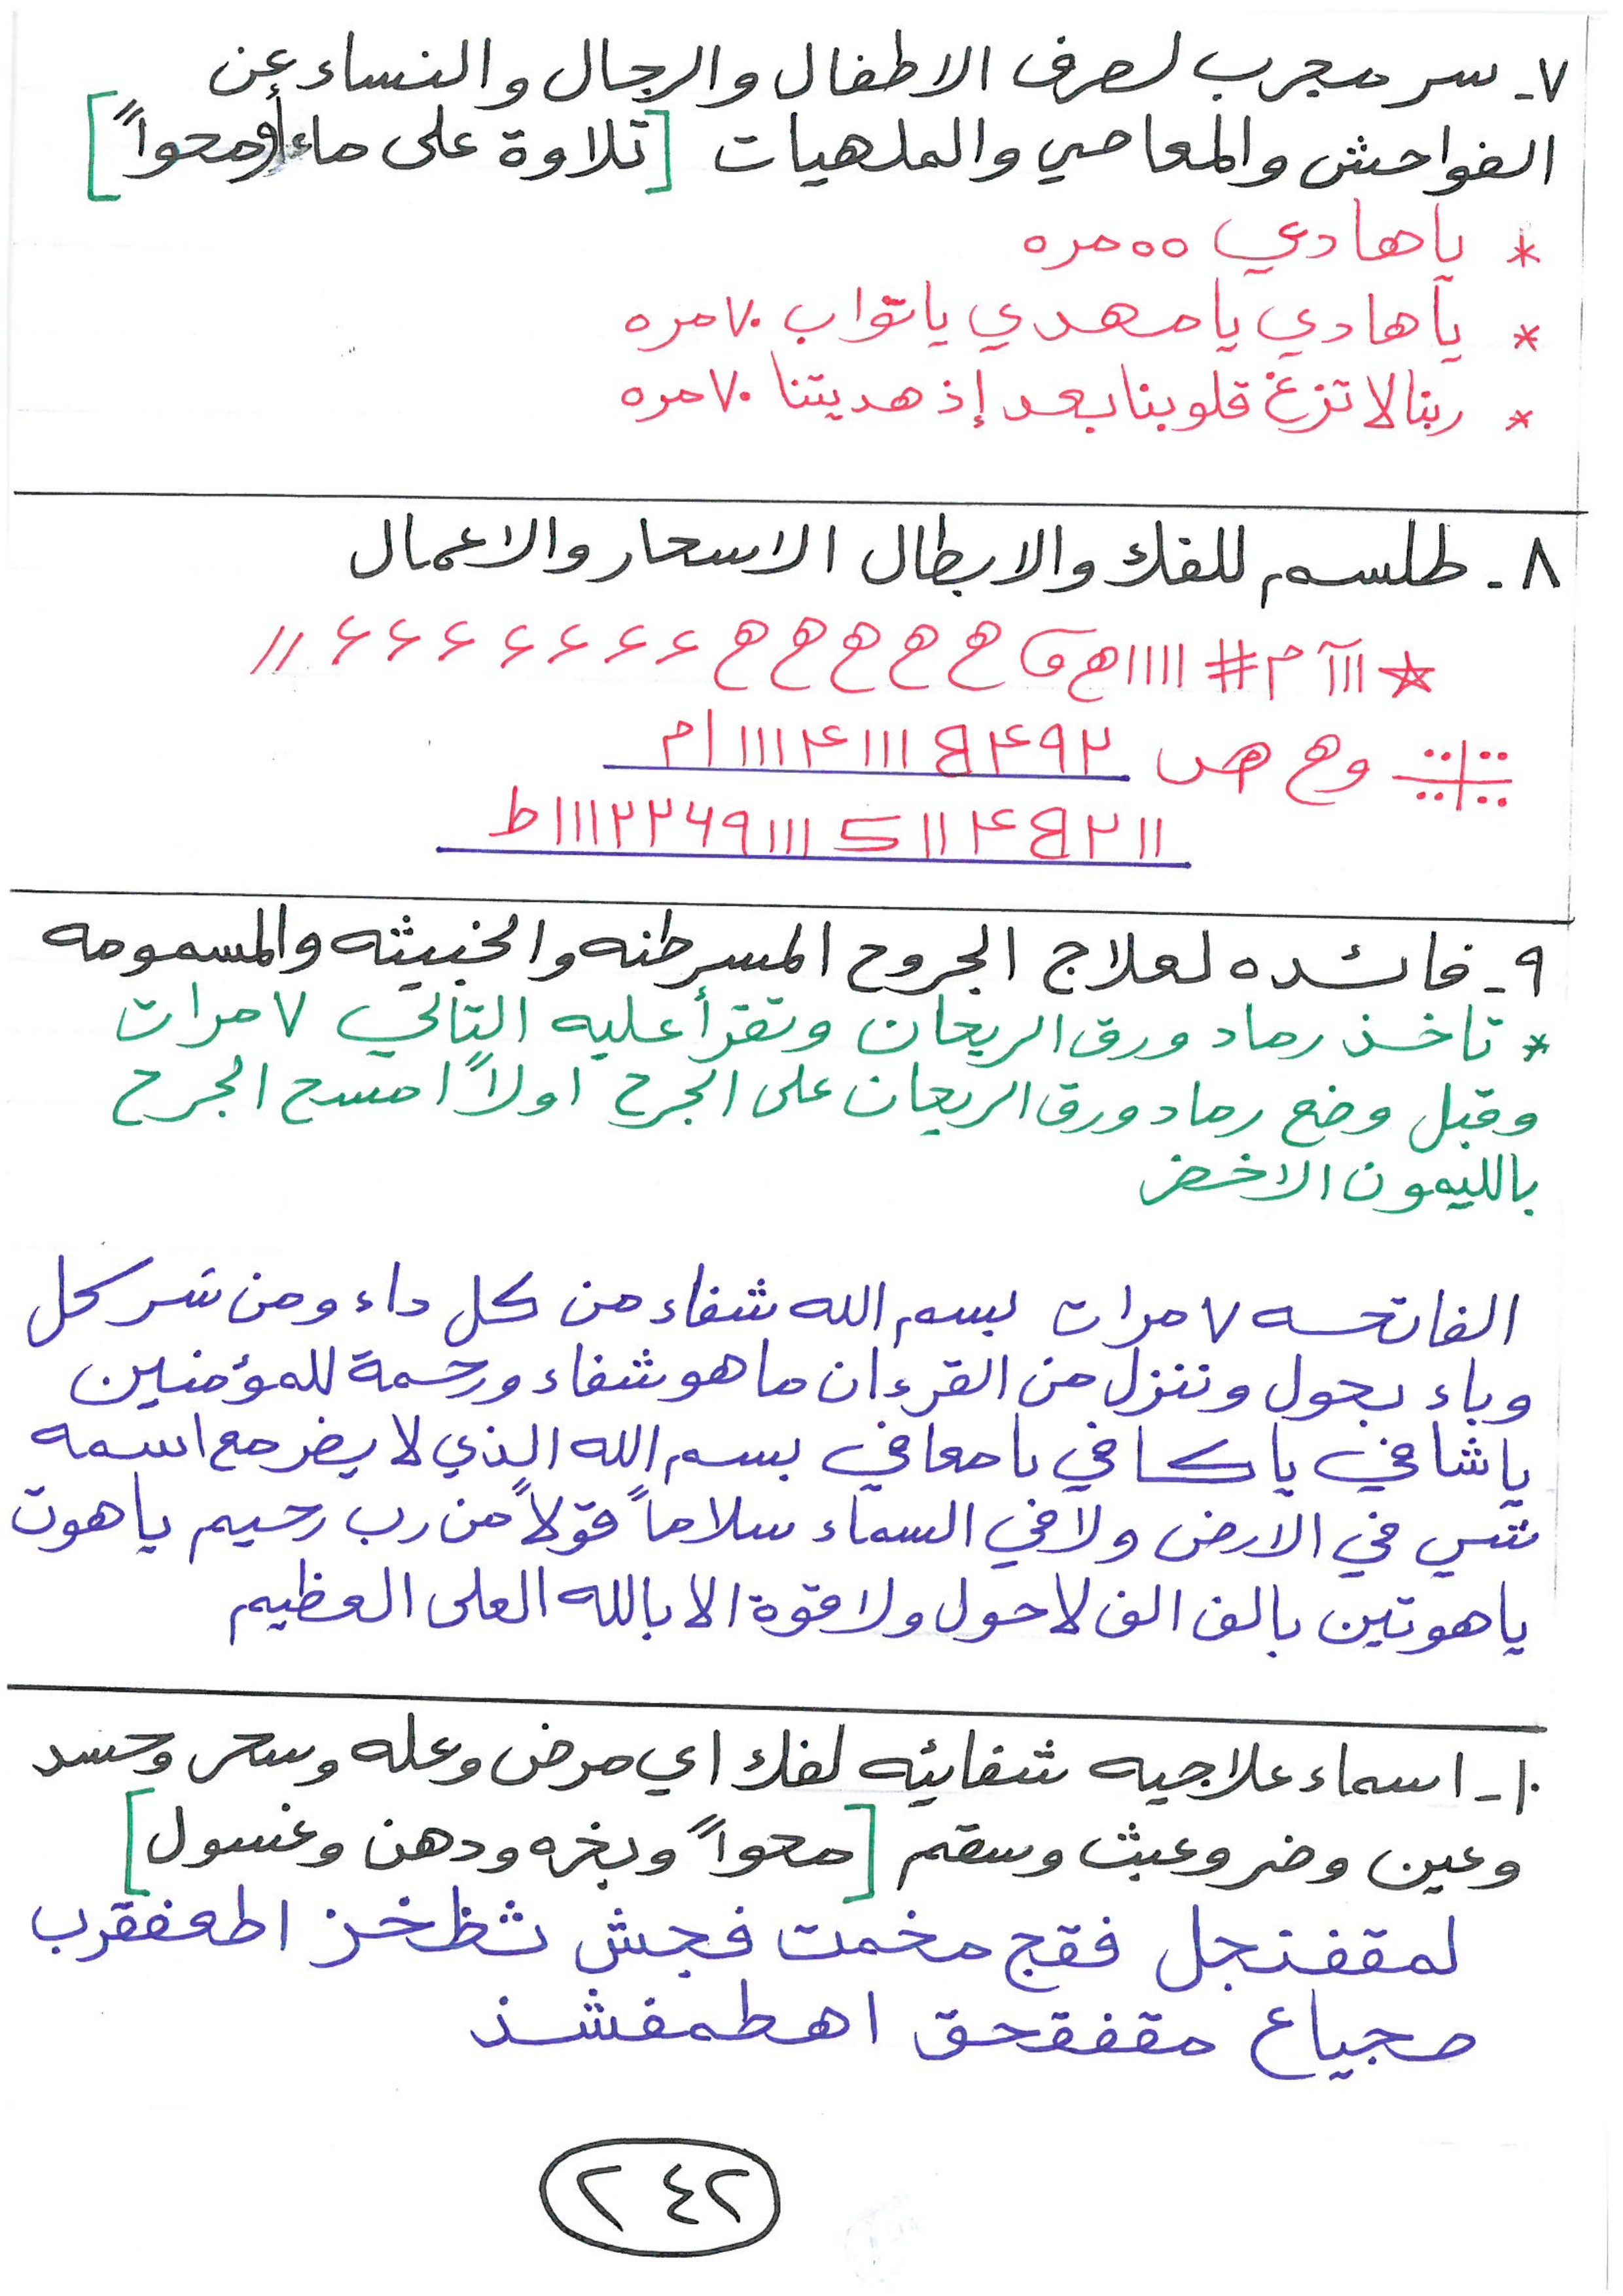 ٧- سر مجرب لصرف الاطفال والرجال والنساء عن
الفواحش والمعاصي والملهيات [تلاوة على ماء أو محواً]
* يا هادي ٥٥ مره
* يا هادي يا مهدي يا تواب ٧٠ مره
* ربنا لا تزغ قلوبنا بعد إذ هديتنا ٧٠ مره
٨- طلسم للفك والابطال الاسحار والاعمال
٩- فائده لعلاج الجروح المسرطنه والخبيثه والمسمومه
* تاخذ رماد ورق الريحان وتقرأ عليه التالي ٧ مرات
وقبل وضع رماد ورق الريحان على الجرح اولاً امسح الجرح
بالليمون الاخضر
الفاتحه ٧ مرات بسم الله شفاء من كل داء ومن شر كل
وباء يحول وننزل من القرءان ما هو شفاء ورحمة للمؤمنين
يا شافي يا كافي يا معافي بسم الله الذي لا يضر مع اسمه
شي في الارض ولا في السماء سلاماً قولاً من رب رحيم يا هوت
يا هوتين بالف الف لا حول ولا قوة الا بالله العلى العظيم
١٠- اسماء علاجيه شفائيه لفك اي مرض وعله وسحر وحسد
وعين وضر وعبث وسقم [محواً وبخره ودهن وغسول]
لمقفنجل فقج مخمت فجش ثظخز اطعفقرب
مجياع مقفقحق اهطمفشذ
٢٤٢